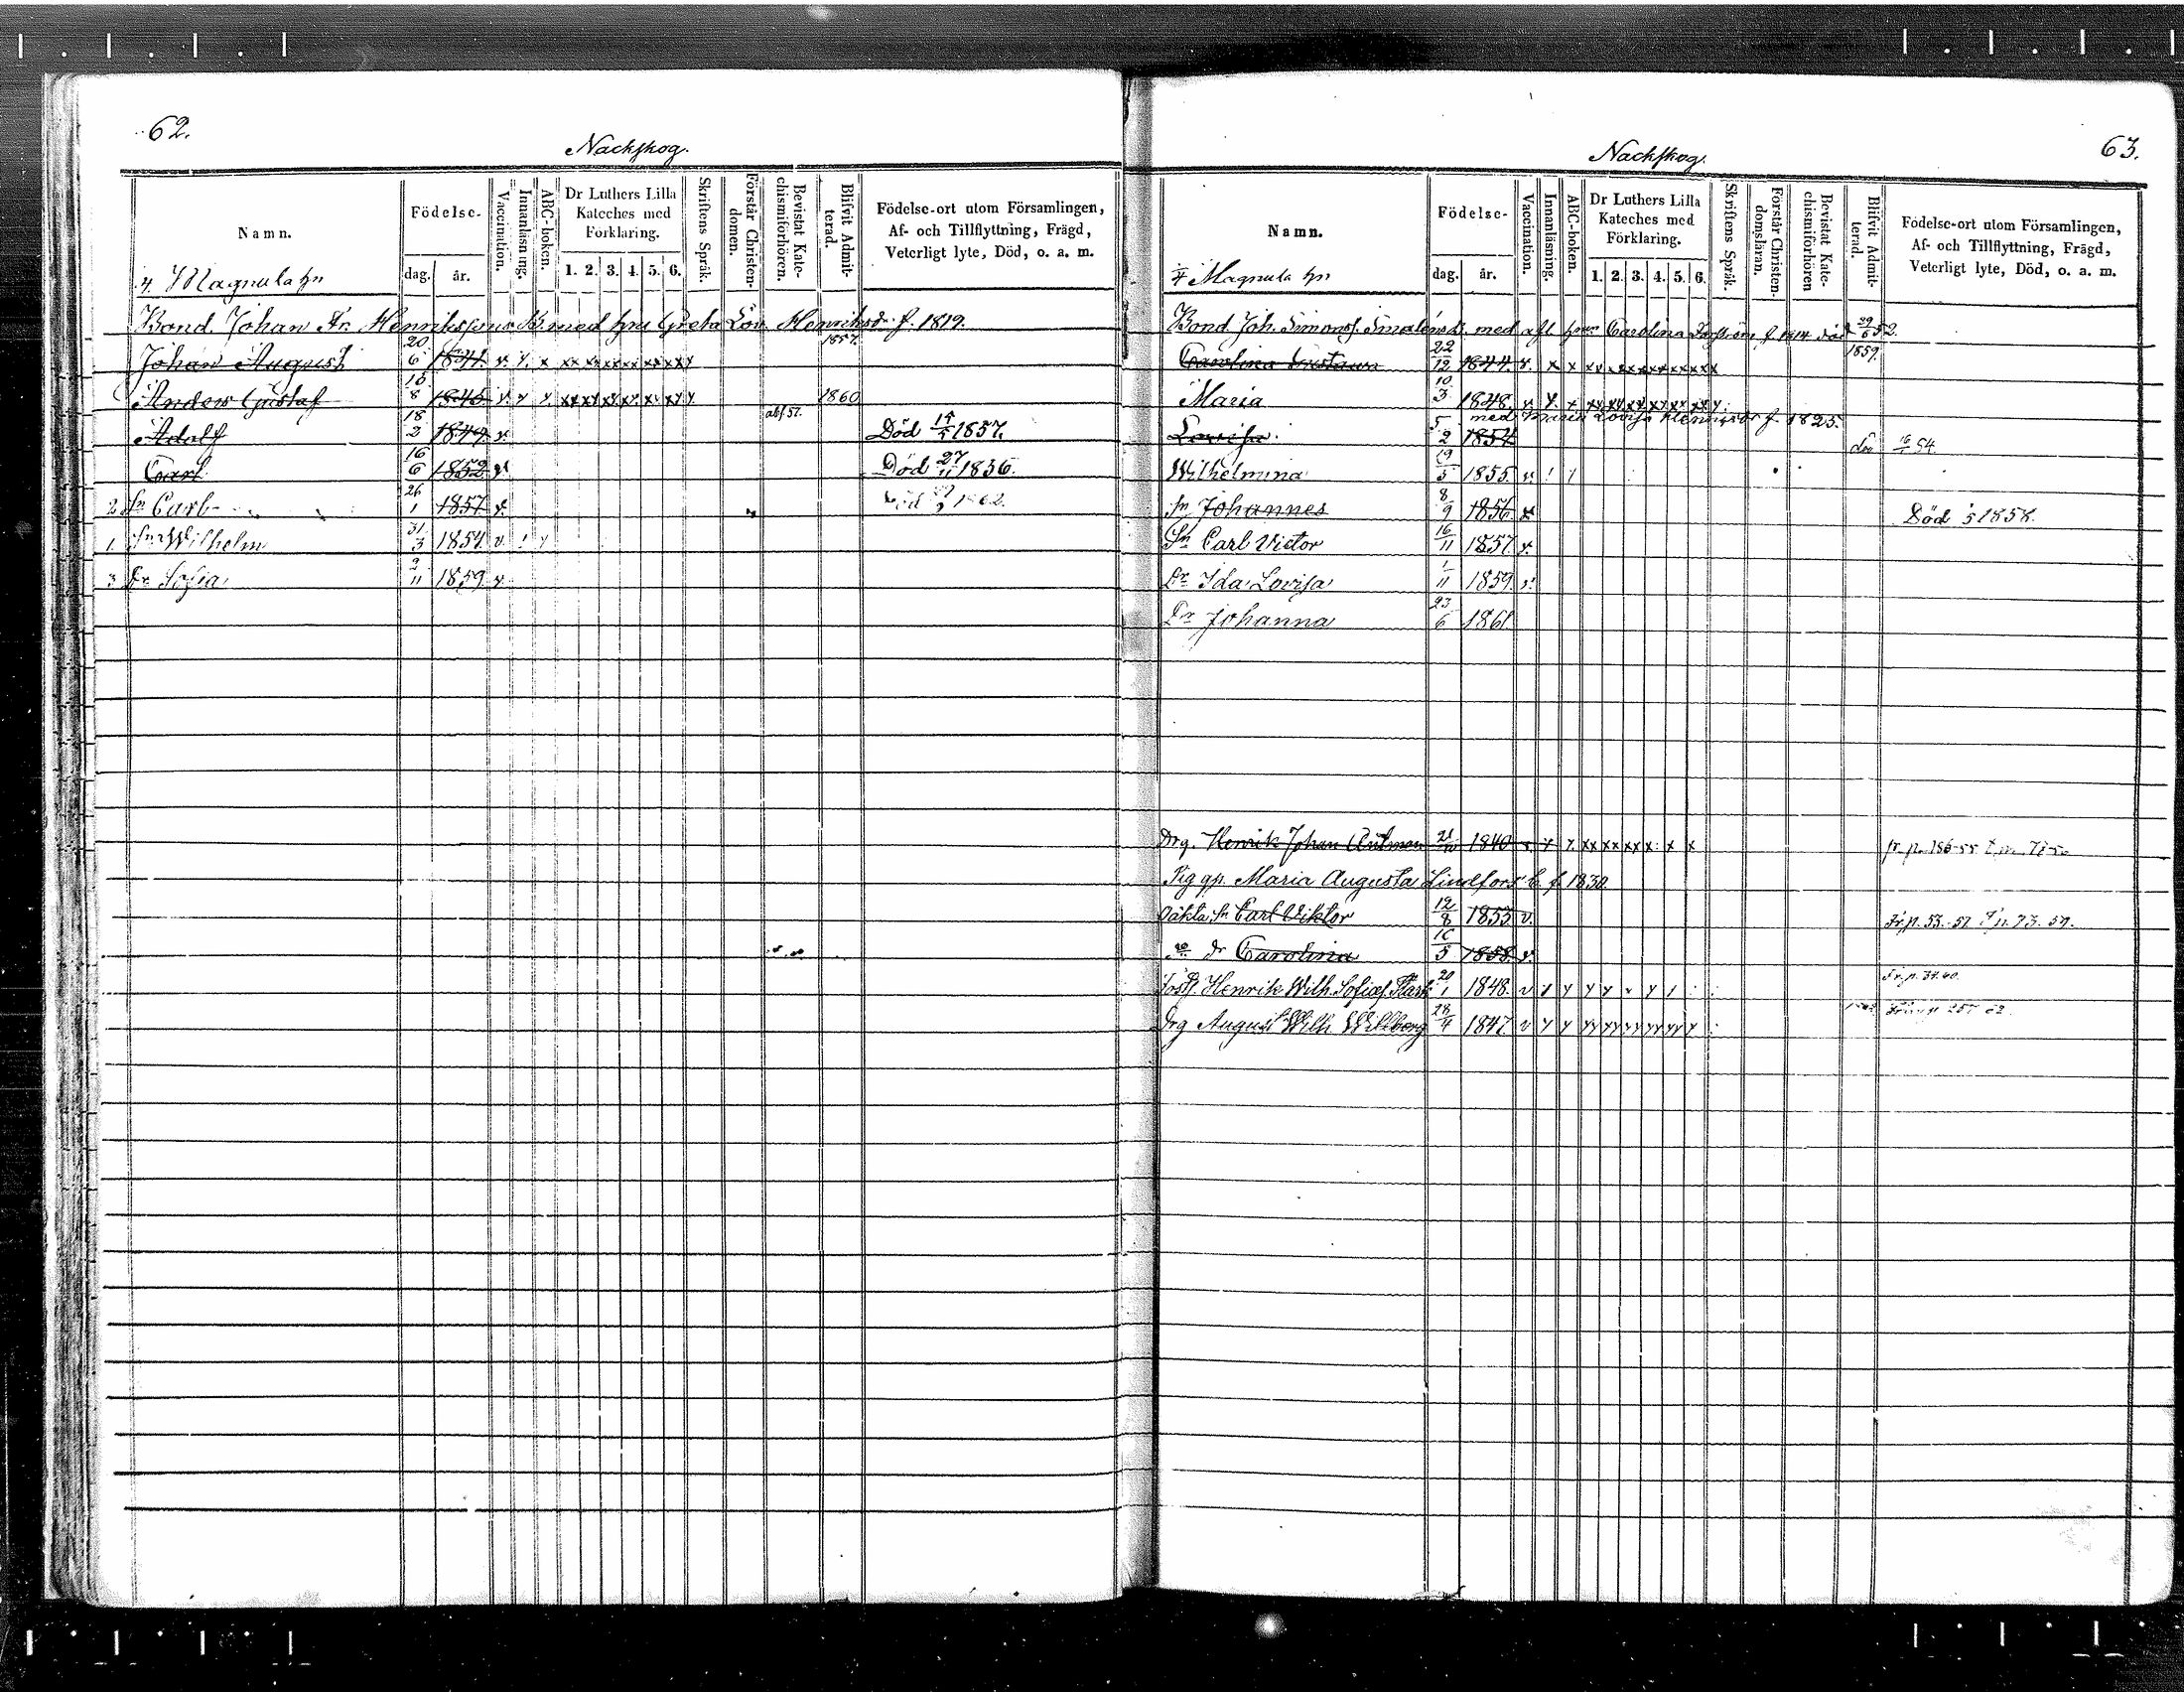 62.
Nackskog.
Namn.
Födelse-
dag.
år.
Vaccination.
Innanläsning.
ABC-boken.
Dr Luthers Lilla
Kateches med
Förklaring.
1. 2. 3. 4. 5. 6.
Skriftens Språk.
Förstår Christen-
domen.
Bevistat Kate-
chismiförhören.
Blifvit Admit-
terad.
Födelse-ort utom Församlingen,
Af- och Tillflyttning, Frägd,
Veterligt lyte, Död, o. a. m.
4. Magnula hn
Bond. Johan Fr. Henrikssons B. med hru Greta Lov. Henriksdr. f. 1819.
Johan August 20/6 1841. v. 1857.
Anders Gustaf 10/8 1845 v. 1860
Adolf 18/2 1849 v. abs. 57. Död 14/5 1857.
Carl 16/6 1852 v. Död 27/11 1856.
2 Sn Carl 26/1 1857 v. 1862.
1. Sn Wilhelm 31/3 1854. v
3 Dr Sofia 2/11 1859 v.
63.
Nackskog.
Namn.
Födelse-
dag.
år.
Vaccination.
Innanläsning.
ABC-boken.
Dr Luthers Lilla
Kateches med
Förklaring.
1. 2. 3. 4. 5. 6.
Skriftens Språk.
Förstår Christen-
domsläran.
Bevistat Kate-
chismiförhören
Blifvit Admit-
terad.
Födelse-ort utom Församlingen,
Af- och Tillflyttning, Frägd,
Veterligt lyte, Död, o. a. m.
4 Magnula hn
Bond. Joh. Simonss. med afl. hrun Carolina f. 1814 död 29/6 52.
Carolina Gustava 22/12 1844. v. 1859.
Maria 10/3 1848. v
med Maria Lovisa Henriksdr f. 1825.
Lovisa. 5/2 1854 16/4 54.
Wilhelmina 19/5 1855. v.
Sn Johannes 8/9 1856 Död 1858.
Sn Carl Victor 16/11 1857. v.
Dr Ida Lovisa 1/11 1859. v.
Dr Johanna 23/6 1861.
Drg. Henrik Johan 21/10 1840 fr. p. 186-55
Pig qp. Maria Augusta Lindfors b. f. 1830.
oäkta sn Carl Viktor 12/8 1855 v. Fr. p. 53.-57. T. p. 73. 59.
do dr Carolina 16/5 1858. v.
Fosts. Henrik Wilh. Sofias. Stark 20/1 1848. v Fr. p. 37.60.
Drg August Wilh. Willberg 28/4 1847. v